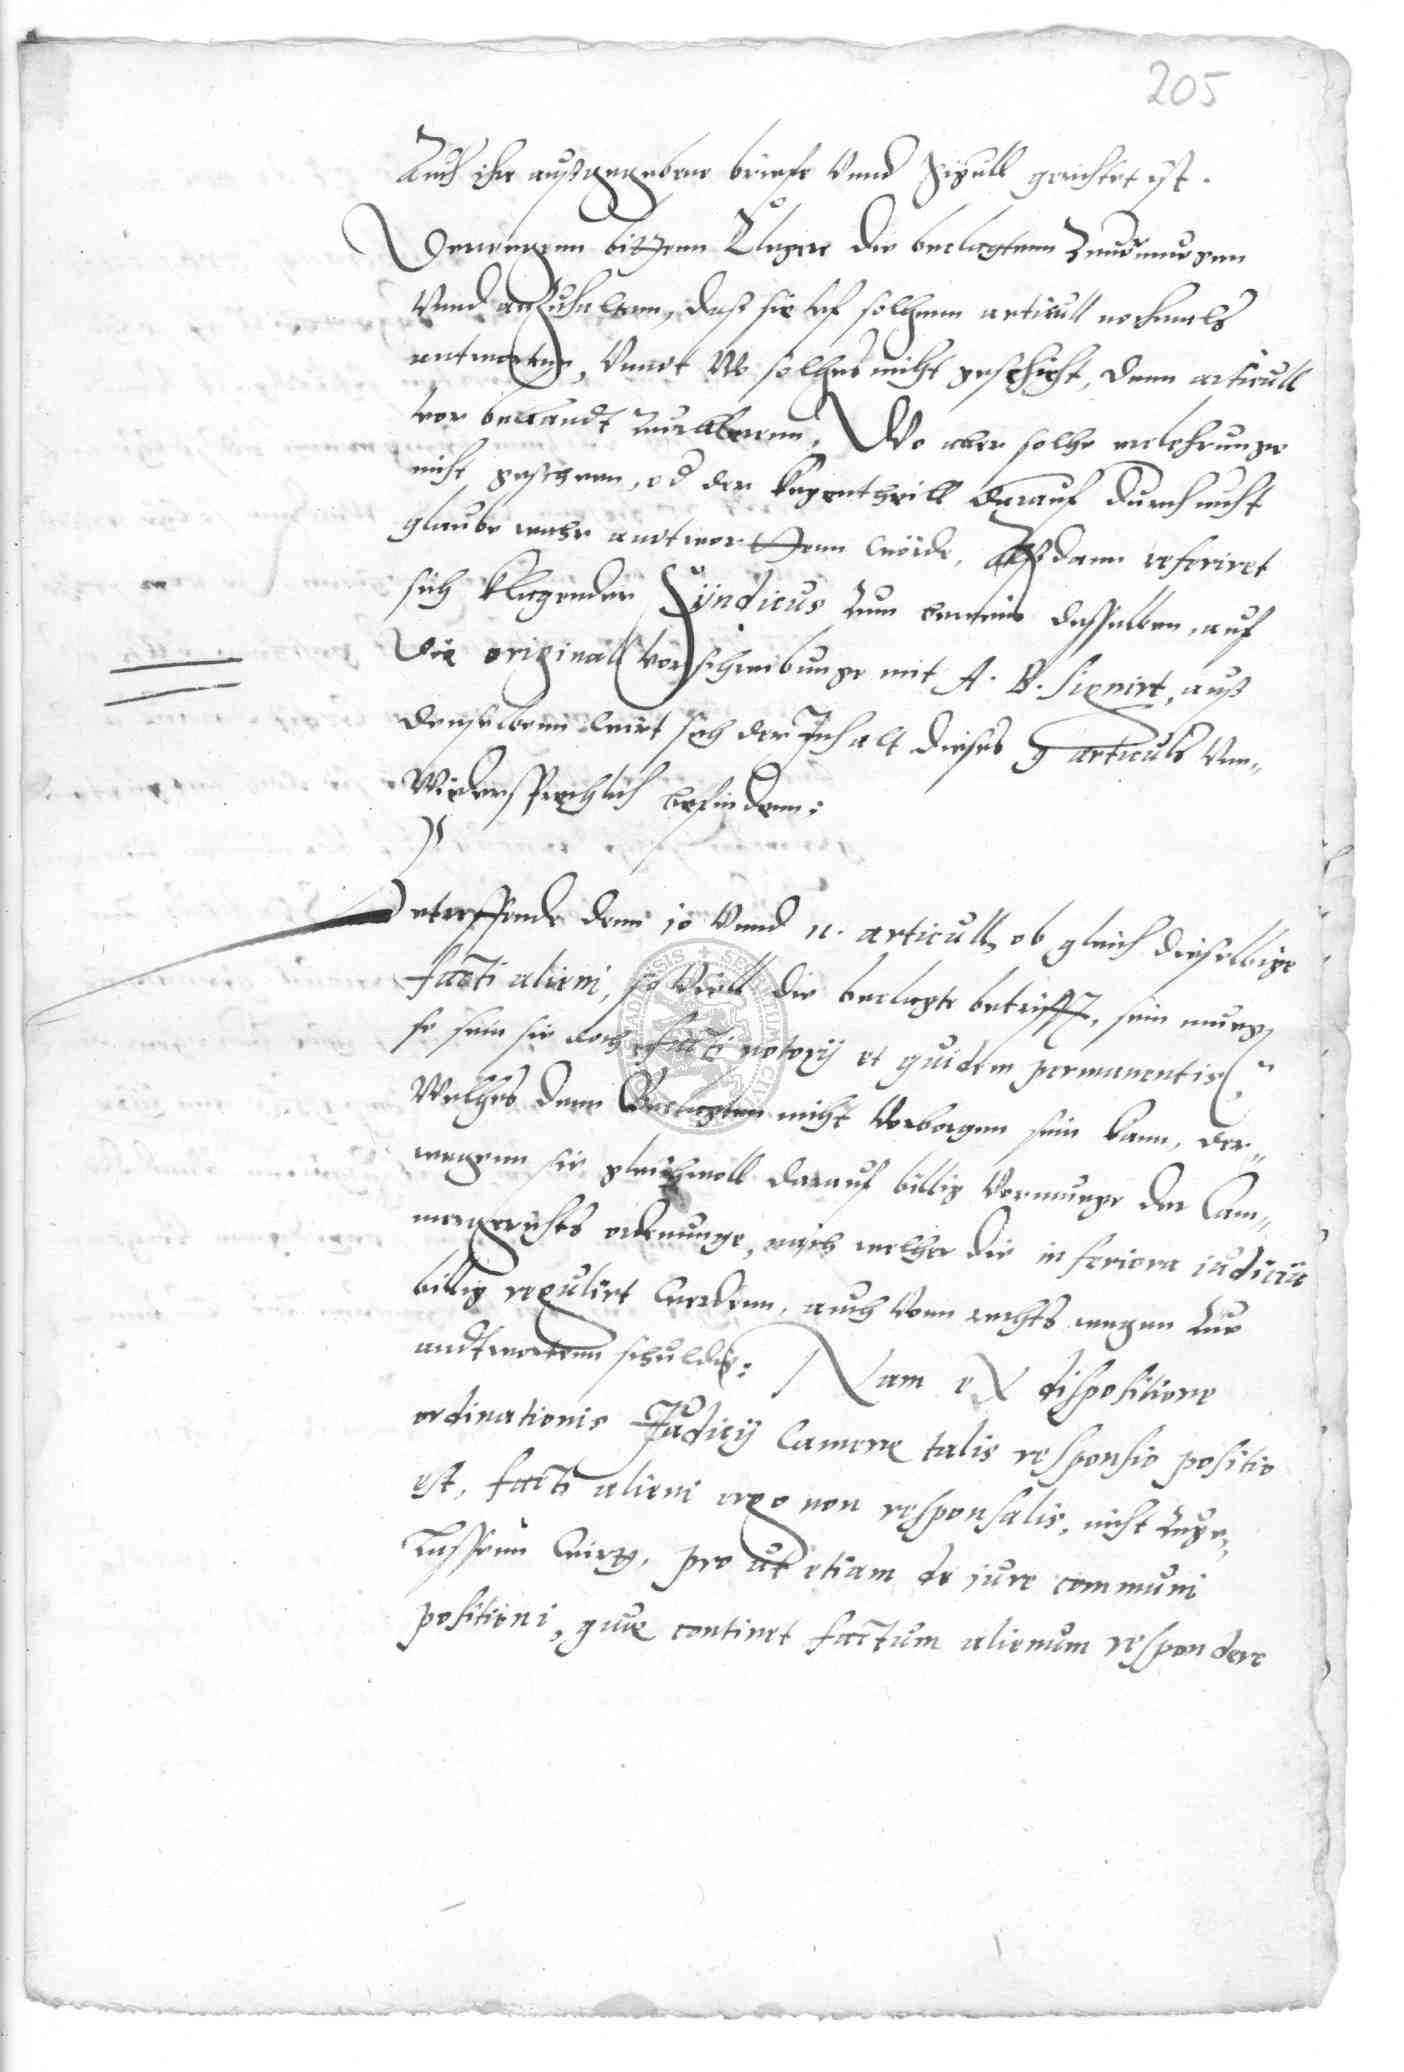 205
Auch ihr außgegebene briefe Vnnd Sigull gerichtet ist.
Derwegenn bittenn Clegere die beclagtenn
Vnnd anzuhaltenn, das sie vf solchenn articull nochmals
antworten, Vnndt Wo solches nicht geschicht, denn articull
vor bekandt Wo aber solche erclehrunge
nicht geschehen, od der kegentheill darauf durch nicht
glaube wahr antworttenn würde, Alßdann referiret
sich klagender Syndicus zum beweis desselben, auf
die original vorschreibunge mit A. B. signirt, auß
denselbenn wirt sich der Inhalt dieses 9 articuls Vn„
Wiedersprechlich befindenn:
Betreffende denn 10 Vnnd 11. articull, ob gleich dieselbige
facti alieni, so Viell die beclagte betrifft, sein muegen
so sein sie doch facti notorij et quidem permanentis
Welches denn Beclagten nicht Verborgen sein kann, der„
wegenn sie gleichwoll darauf billig Vermuege der Cam„
mergerichts ordenunge, nach welcher die inferiora iudicia
billig regulirt werdenn, auch Vonn rechts wegen zue
andtwortenn schuldig: Nam ex dispositione
ordinationis Judicij Camerae talis responsio positio
est, facti alieni ergo non responsalis, nicht zuge„
lassenn wirt, pro ut etiam de iure communi
positioni, quae continet factum alienum respondere